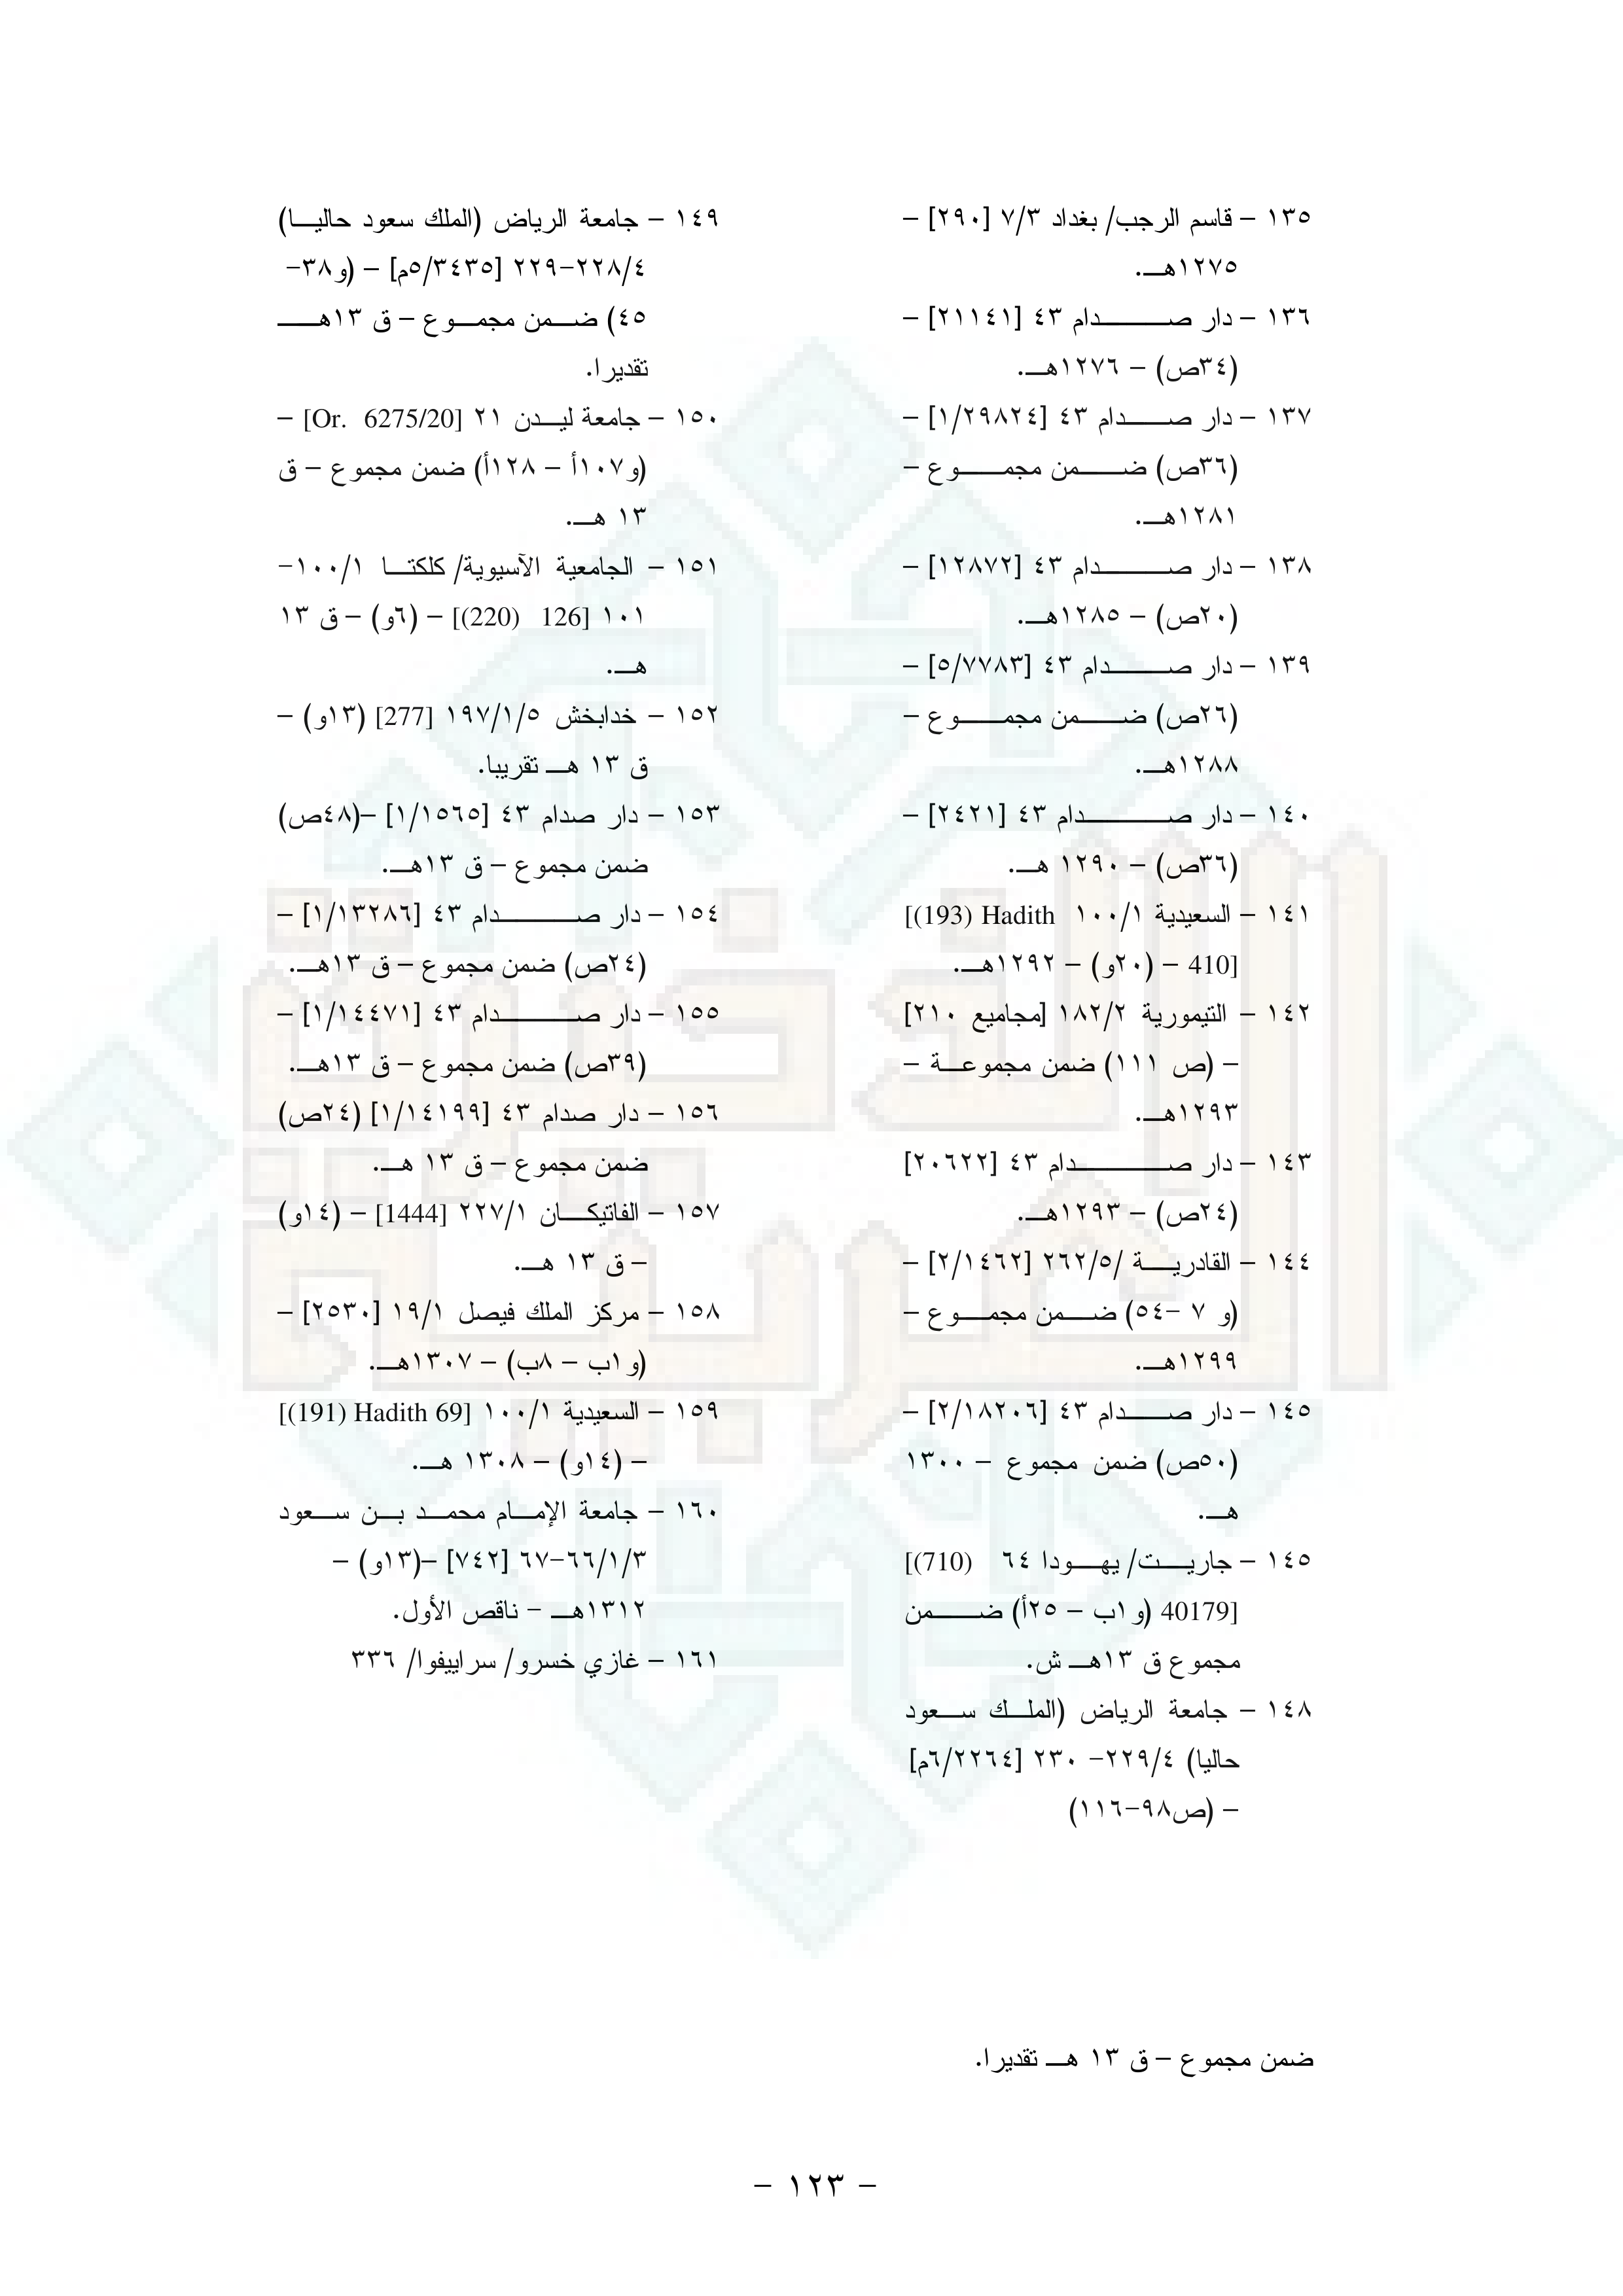 ١٣٥ – قاسم الرجب/ بغداد ٧/٣ [٢٩٠] –
١٢٧٥هـ.
١٣٦ – دار صدام ٤٣ [٢١١٤١] –
(٣٤ص) – ١٢٧٦هـ.
١٣٧ – دار صدام ٤٣ [١/٢٩٨٢٤] –
(٣٦ص) ضمن مجموع –
١٢٨١هـ.
١٣٨ – دار صدام ٤٣ [١٢٨٧٢] –
(٢٠ص) – ١٢٨٥هـ.
١٣٩ – دار صدام ٤٣ [٥/٧٧٨٣] –
(٢٦ص) ضمن مجموع –
١٢٨٨هـ.
١٤٠ – دار صدام ٤٣ [٢٤٢١] –
(٣٦ص) – ١٢٩٠ هـ.
١٤١ – السعيدية ١٠٠/١ [(193) Hadith
410] – (٢٠و) – ١٢٩٢هـ.
١٤٢ – التيمورية ١٨٢/٢ [مجاميع ٢١٠]
– (ص ١١١) ضمن مجموعة –
١٢٩٣هـ.
١٤٣ – دار صدام ٤٣ [٢٠٦٢٢]
(٢٤ص) – ١٢٩٣هـ.
١٤٤ – القادرية /٢٦٢/٥ [٢/١٤٦٢] –
(و ٧ -٥٤) ضمن مجموع –
١٢٩٩هـ.
١٤٥ – دار صدام ٤٣ [٢/١٨٢٠٦] –
(٥٠ص) ضمن مجموع – ١٣٠٠
هـ.
١٤٥ – جاريت/ يهودا ٦٤ [(710)
40179] (و١ب – ٢٥أ) ضمن
مجموع ق ١٣هـ ش.
١٤٨ – جامعة الرياض (الملك سعود
حاليا) ٢٢٩/٤- ٢٣٠ [٦/٢٢٦٤م]
– (ص٩٨-١١٦)
ضمن مجموع – ق ١٣ هـ تقديرا.
١٤٩ – جامعة الرياض (الملك سعود حاليا)
٢٢٨/٤-٢٢٩ [٥/٣٤٣٥م] – (و٣٨-
٤٥) ضمن مجموع – ق ١٣هـ
تقديرا.
١٥٠ – جامعة ليدن ٢١ [Or. 6275/20] –
(و١٠٧أ – ١٢٨أ) ضمن مجموع – ق
١٣ هـ.
١٥١ – الجامعية الآسيوية/ كلكتا ١٠٠/١-
١٠١ [126 (220)] – (٦و) – ق ١٣
هـ.
١٥٢ – خدابخش ١٩٧/١/٥ [277] (١٣و) –
ق ١٣ هـ تقريبا.
١٥٣ – دار صدام ٤٣ [١/١٥٦٥] –(٤٨ص)
ضمن مجموع – ق ١٣هـ.
١٥٤ – دار صدام ٤٣ [١/١٣٢٨٦] –
(٢٤ص) ضمن مجموع – ق ١٣هـ.
١٥٥ – دار صدام ٤٣ [١/١٤٤٧١] –
(٣٩ص) ضمن مجموع – ق ١٣هـ.
١٥٦ – دار صدام ٤٣ [١/١٤١٩٩] (٢٤ص)
ضمن مجموع – ق ١٣ هـ.
١٥٧ – الفاتيكان ٢٢٧/١ [1444] – (١٤و)
– ق ١٣ هـ.
١٥٨ – مركز الملك فيصل ١٩/١ [٢٥٣٠] –
(و١ب – ٨ب) – ١٣٠٧هـ.
١٥٩ – السعيدية ١٠٠/١ [(191) Hadith 69]
– (١٤و) – ١٣٠٨ هـ.
١٦٠ – جامعة الإمام محمد بن سعود
٦٦/١/٣-٦٧ [٧٤٢] –(١٣و) –
١٣١٢هـ – ناقص الأول.
١٦١ – غازي خسرو/ سراييفوا/ ٣٣٦
– ١٢٣ –
الذخيرة العربية